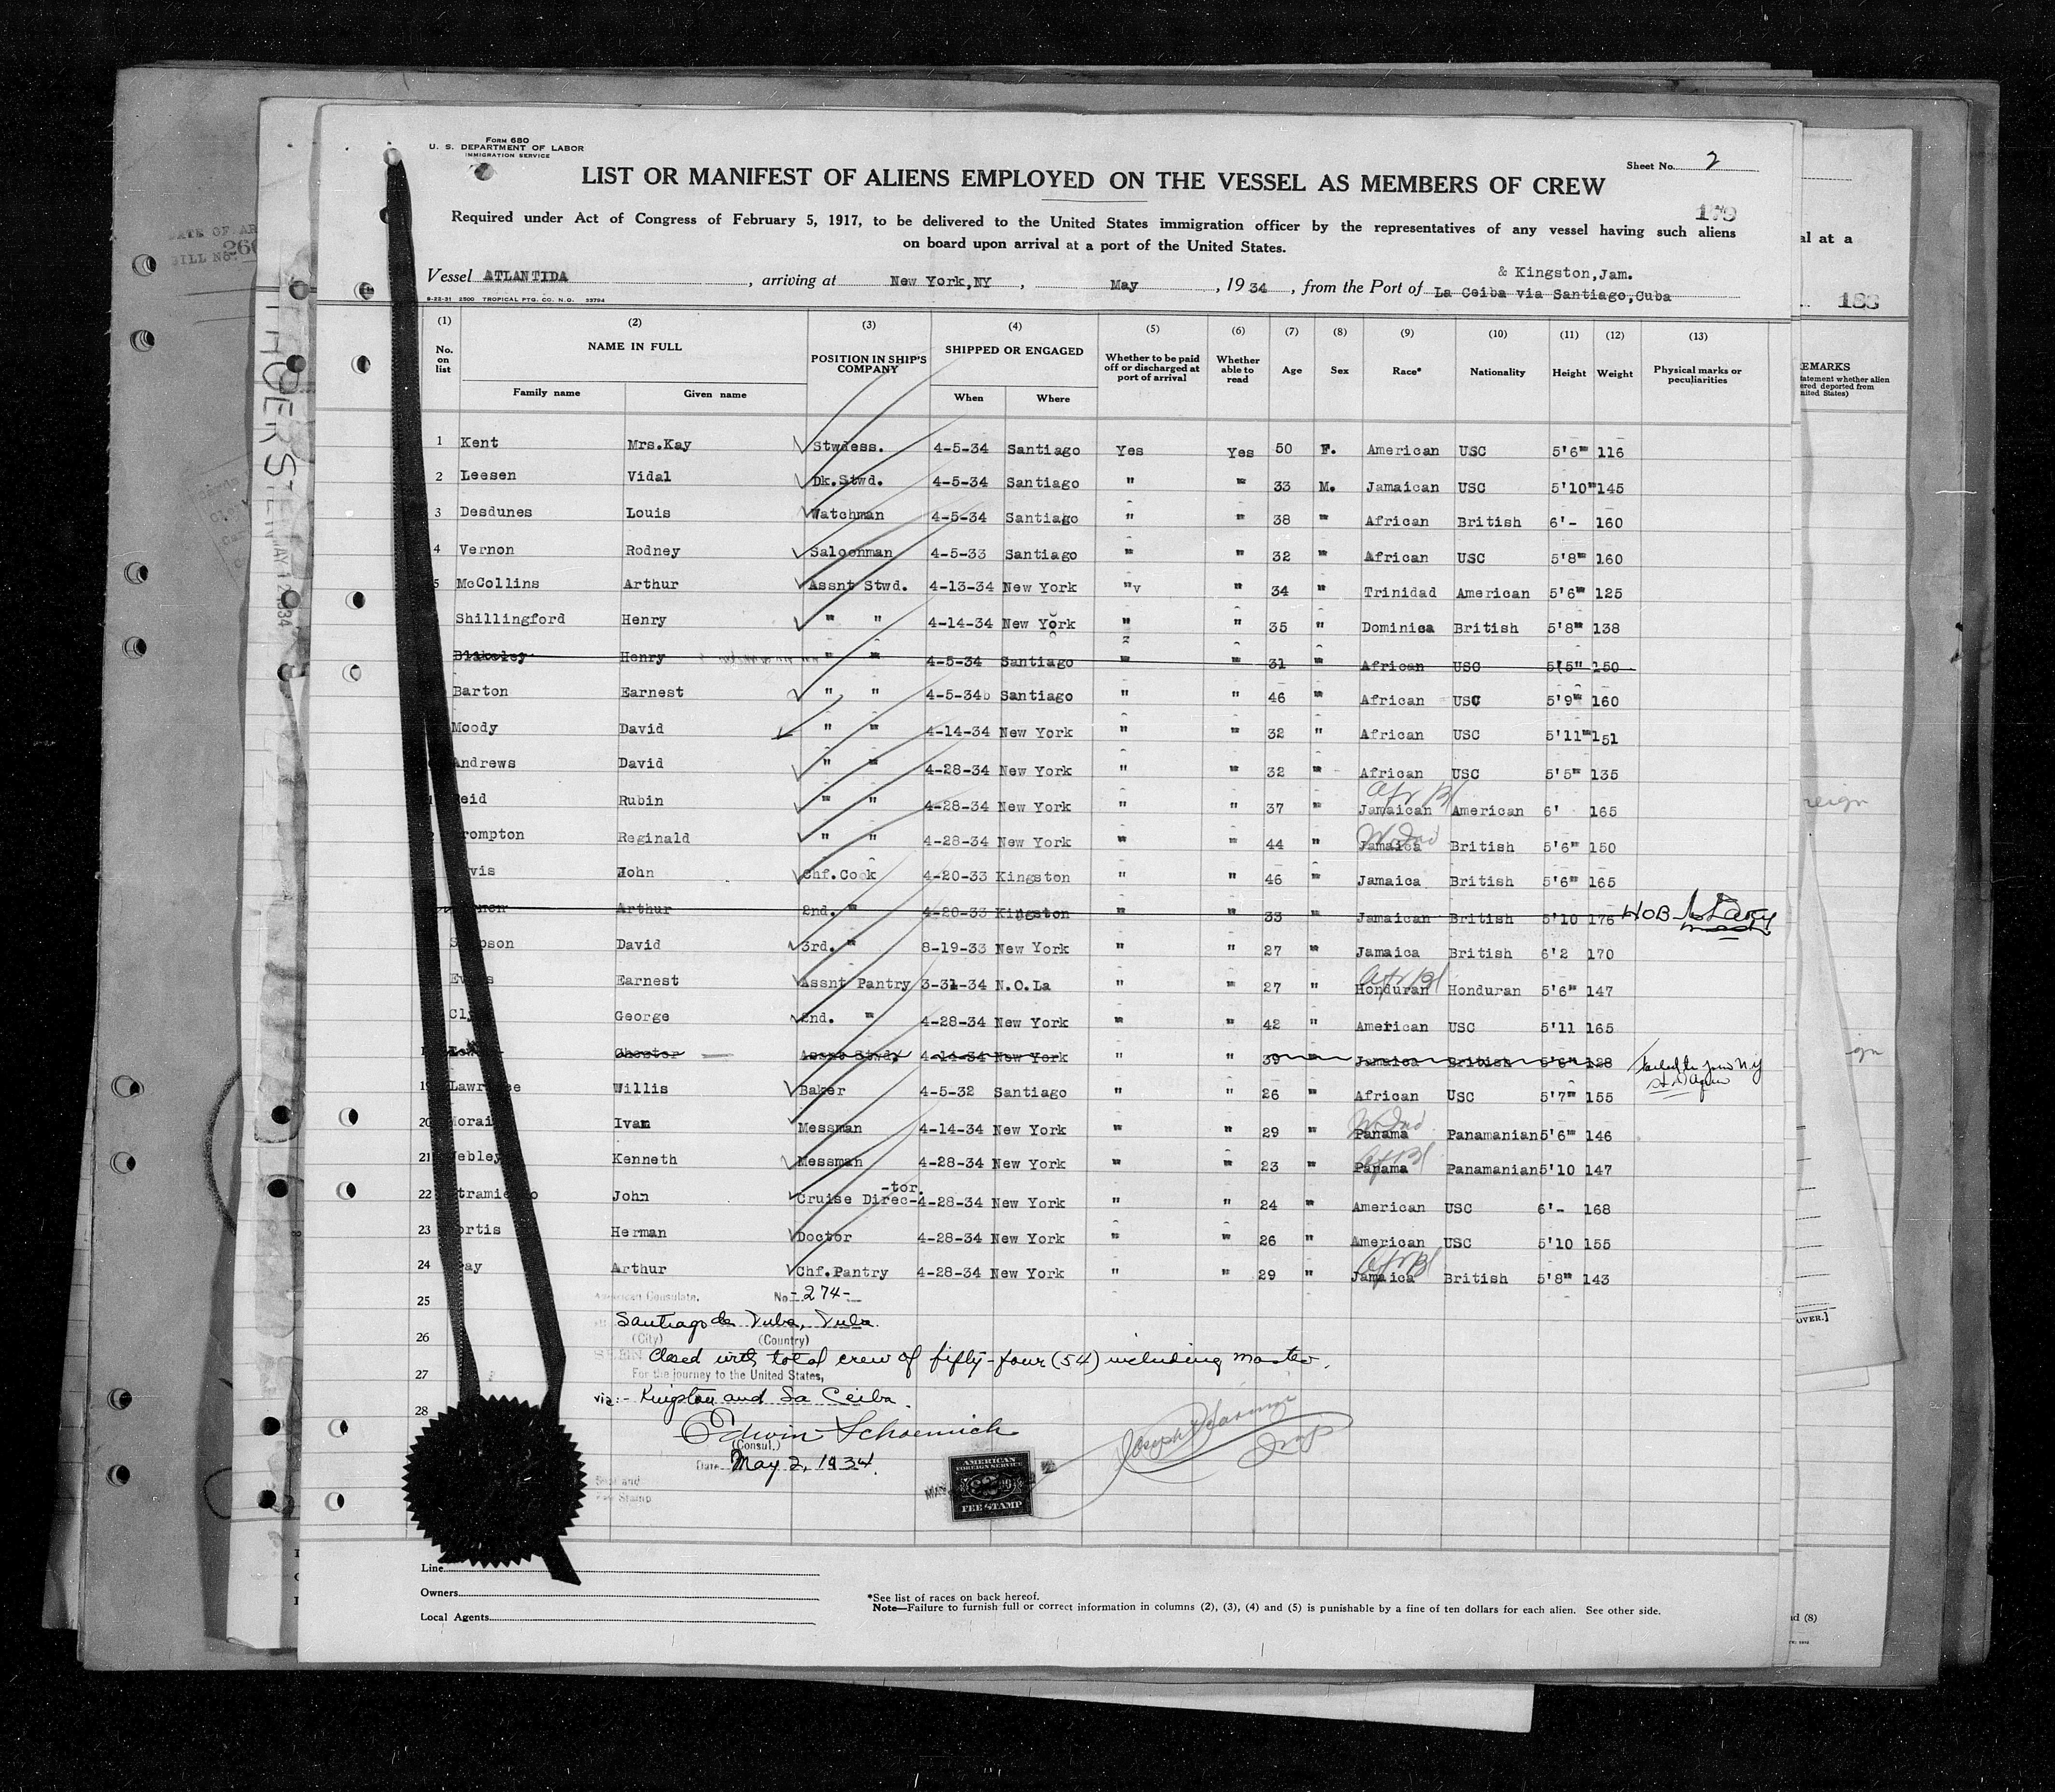 Form 680
U. S. DEPARTMENT OF LABOR
IMMIGRATION SERVICE
Sheet No. 2
LIST OR MANIFEST OF ALIENS EMPLOYED ON THE VESSEL AS MEMBERS OF CREW
179
Required under Act of Congress of February 5, 1917, to be delivered to the United States immigration officer by the representatives of any vessel having such aliens
on board upon arrival at a port of the United States.
& Kingston,Jam.
Vessel ATLANTIDA, arriving at New York,NY, May, 1934, from the Port of La Ceiba via Santiago,Cuba
8-22-31 2500 TROPICAL PTG. CO. N.O. 33794
183
(1) (2) (3) (4) (5) (6) (7) (8) (9) (10) (11) (12) (13)
No. on list NAME IN FULL POSITION IN SHIP'S COMPANY SHIPPED OR ENGAGED Whether to be paid off or discharged at port of arrival Whether able to read Age Sex Race* Nationality Height Weight Physical marks or peculiarities
Family name Given name When Where
1 Kent Mrs.Kay Stwdess. 4-5-34 Santiago Yes Yes 50 F. American USC 5'6" 116
2 Leesen Vidal Dk.Stwd. 4-5-34 Santiago " " 33 M. Jamaican USC 5'10" 145
3 Desdunes Louis Watchman 4-5-34 Santiago " " 38 " African British 6'- 160
4 Vernon Rodney Saloonman 4-5-33 Santiago " " 32 " African USC 5'8" 160
5 McCollins Arthur Assnt Stwd. 4-13-34 New York "v " 34 " Trinidad American 5'6" 125
Shillingford Henry " " 4-14-34 New York " " 35 " Dominica British 5'8" 138
Blakeley Henry " " 4-5-34 Santiago " " 31 " African USC 5'5" 150
Barton Earnest " " 4-5-34b Santiago " " 46 " African USC 5'9" 160
Moody David " " 4-14-34 New York " " 32 " African USC 5'11" 151
Andrews David " " 4-28-34 New York " " 32 " African USC 5'5" 135
Afr Bl
Reid Rubin " " 4-28-34 New York " " 37 " Jamaican American 6' 165
W Ind
rompton Reginald " " 4-28-34 New York " " 44 " Jamaica British 5'6" 150
vis John Chf.Cook 4-20-33 Kingston " " 46 " Jamaica British 5'6" 165
Arthur 2nd. " 4-20-33 Kingston " " 33 " Jamaican British 5'10 175 HOB
S pson David 3rd. " 8-19-33 New York " " 27 " Jamaica British 6'2 170
Afr Bl
Ev s Earnest Assnt Pantry 3-31-34 N.O.La " " 27 " Honduran Honduran 5'6" 147
Cly George 2nd. " 4-28-34 New York " " 42 " American USC 5'11 165
Chester Assnt Stwd, 4-14-34 New York " " 39 " Jamaica British 5'6" 128 failed to join N.Y
19 Lawrence Willis Baker 4-5-32 Santiago " " 26 " African USC 5'7" 155
W Ind
20 Morai Ivan Messman 4-14-34 New York " " 29 " Panama Panamanian 5'6" 146
Af Bl
21 Webley Kenneth Messman 4-28-34 New York " " 23 " Panama Panamanian 5'10 147
22 trami o John Cruise Direc-tor. 4-28-34 New York " " 24 " American USC 6'- 168
23 ortis Herman Doctor 4-28-34 New York " " 26 " American USC 5'10 155
Afr Bl
24 ay Arthur Chf.Pantry 4-28-34 New York " " 29 " Jamaica British 5'8" 143
American Consulate. No.-274-
25
Santiago de Cuba, Cuba.
26 (City) (Country)
SEEN Closed with total crew of fifty-four (54) including master.
27 For the journey to the United States,
via:- Kingston and La Ceiba.
28
Edwin Schoenrich
(Consul.)
Date May 2, 1934.
Seal and
Fee Stamp
AMERICAN
FOREIGN SERVICE
FEE STAMP
Line
Owners
Local Agents
*See list of races on back hereof.
Note—Failure to furnish full or correct information in columns (2), (3), (4) and (5) is punishable by a fine of ten dollars for each alien. See other side.